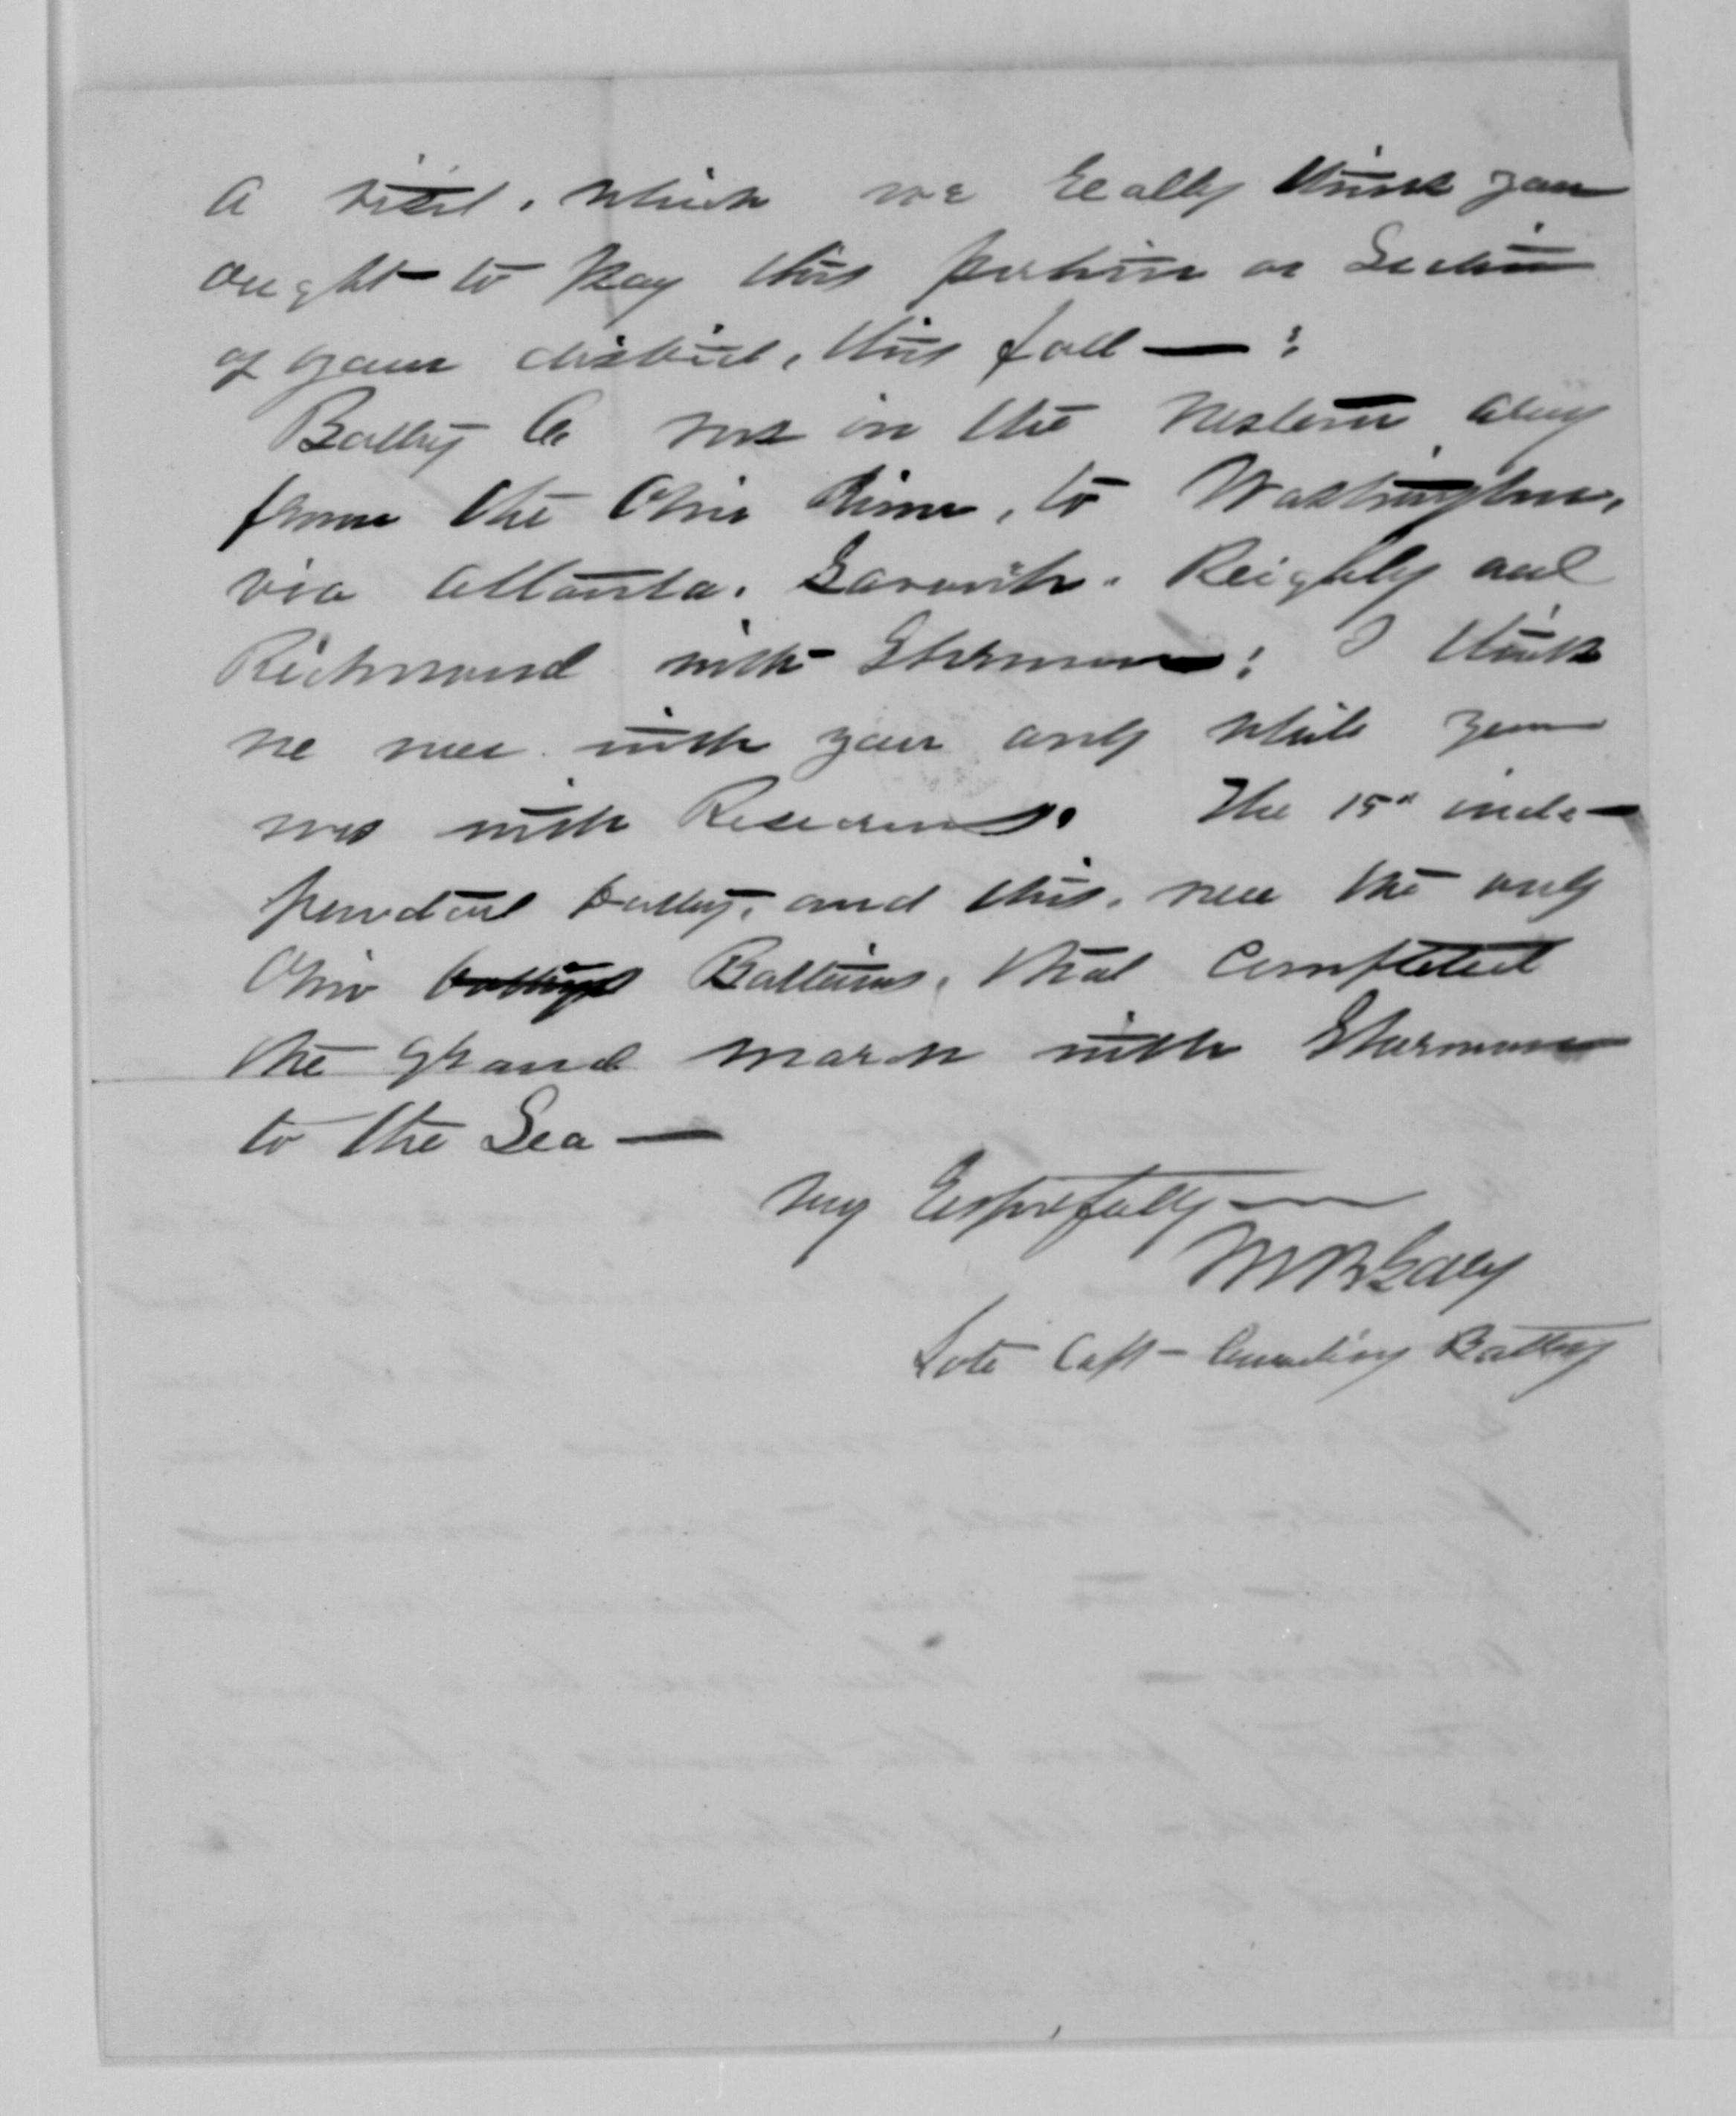 a visit, which we really think you
ought to pay this portion or Section
of your district, this fall — :
Battery C was in the Western army
from the Ohio River, to Washington,
via Atlanta, Savanah, Reighly and
Richmond with Sherman: I think
we wer with your army while you
was with Rosecrans. The 15" inde-
pendent battery, and this, wer the only
Ohio batterys Batteries, that completed
the grand march with Sherman
to the Sea —
very Respectfully
Late Capt - Comnding Battery